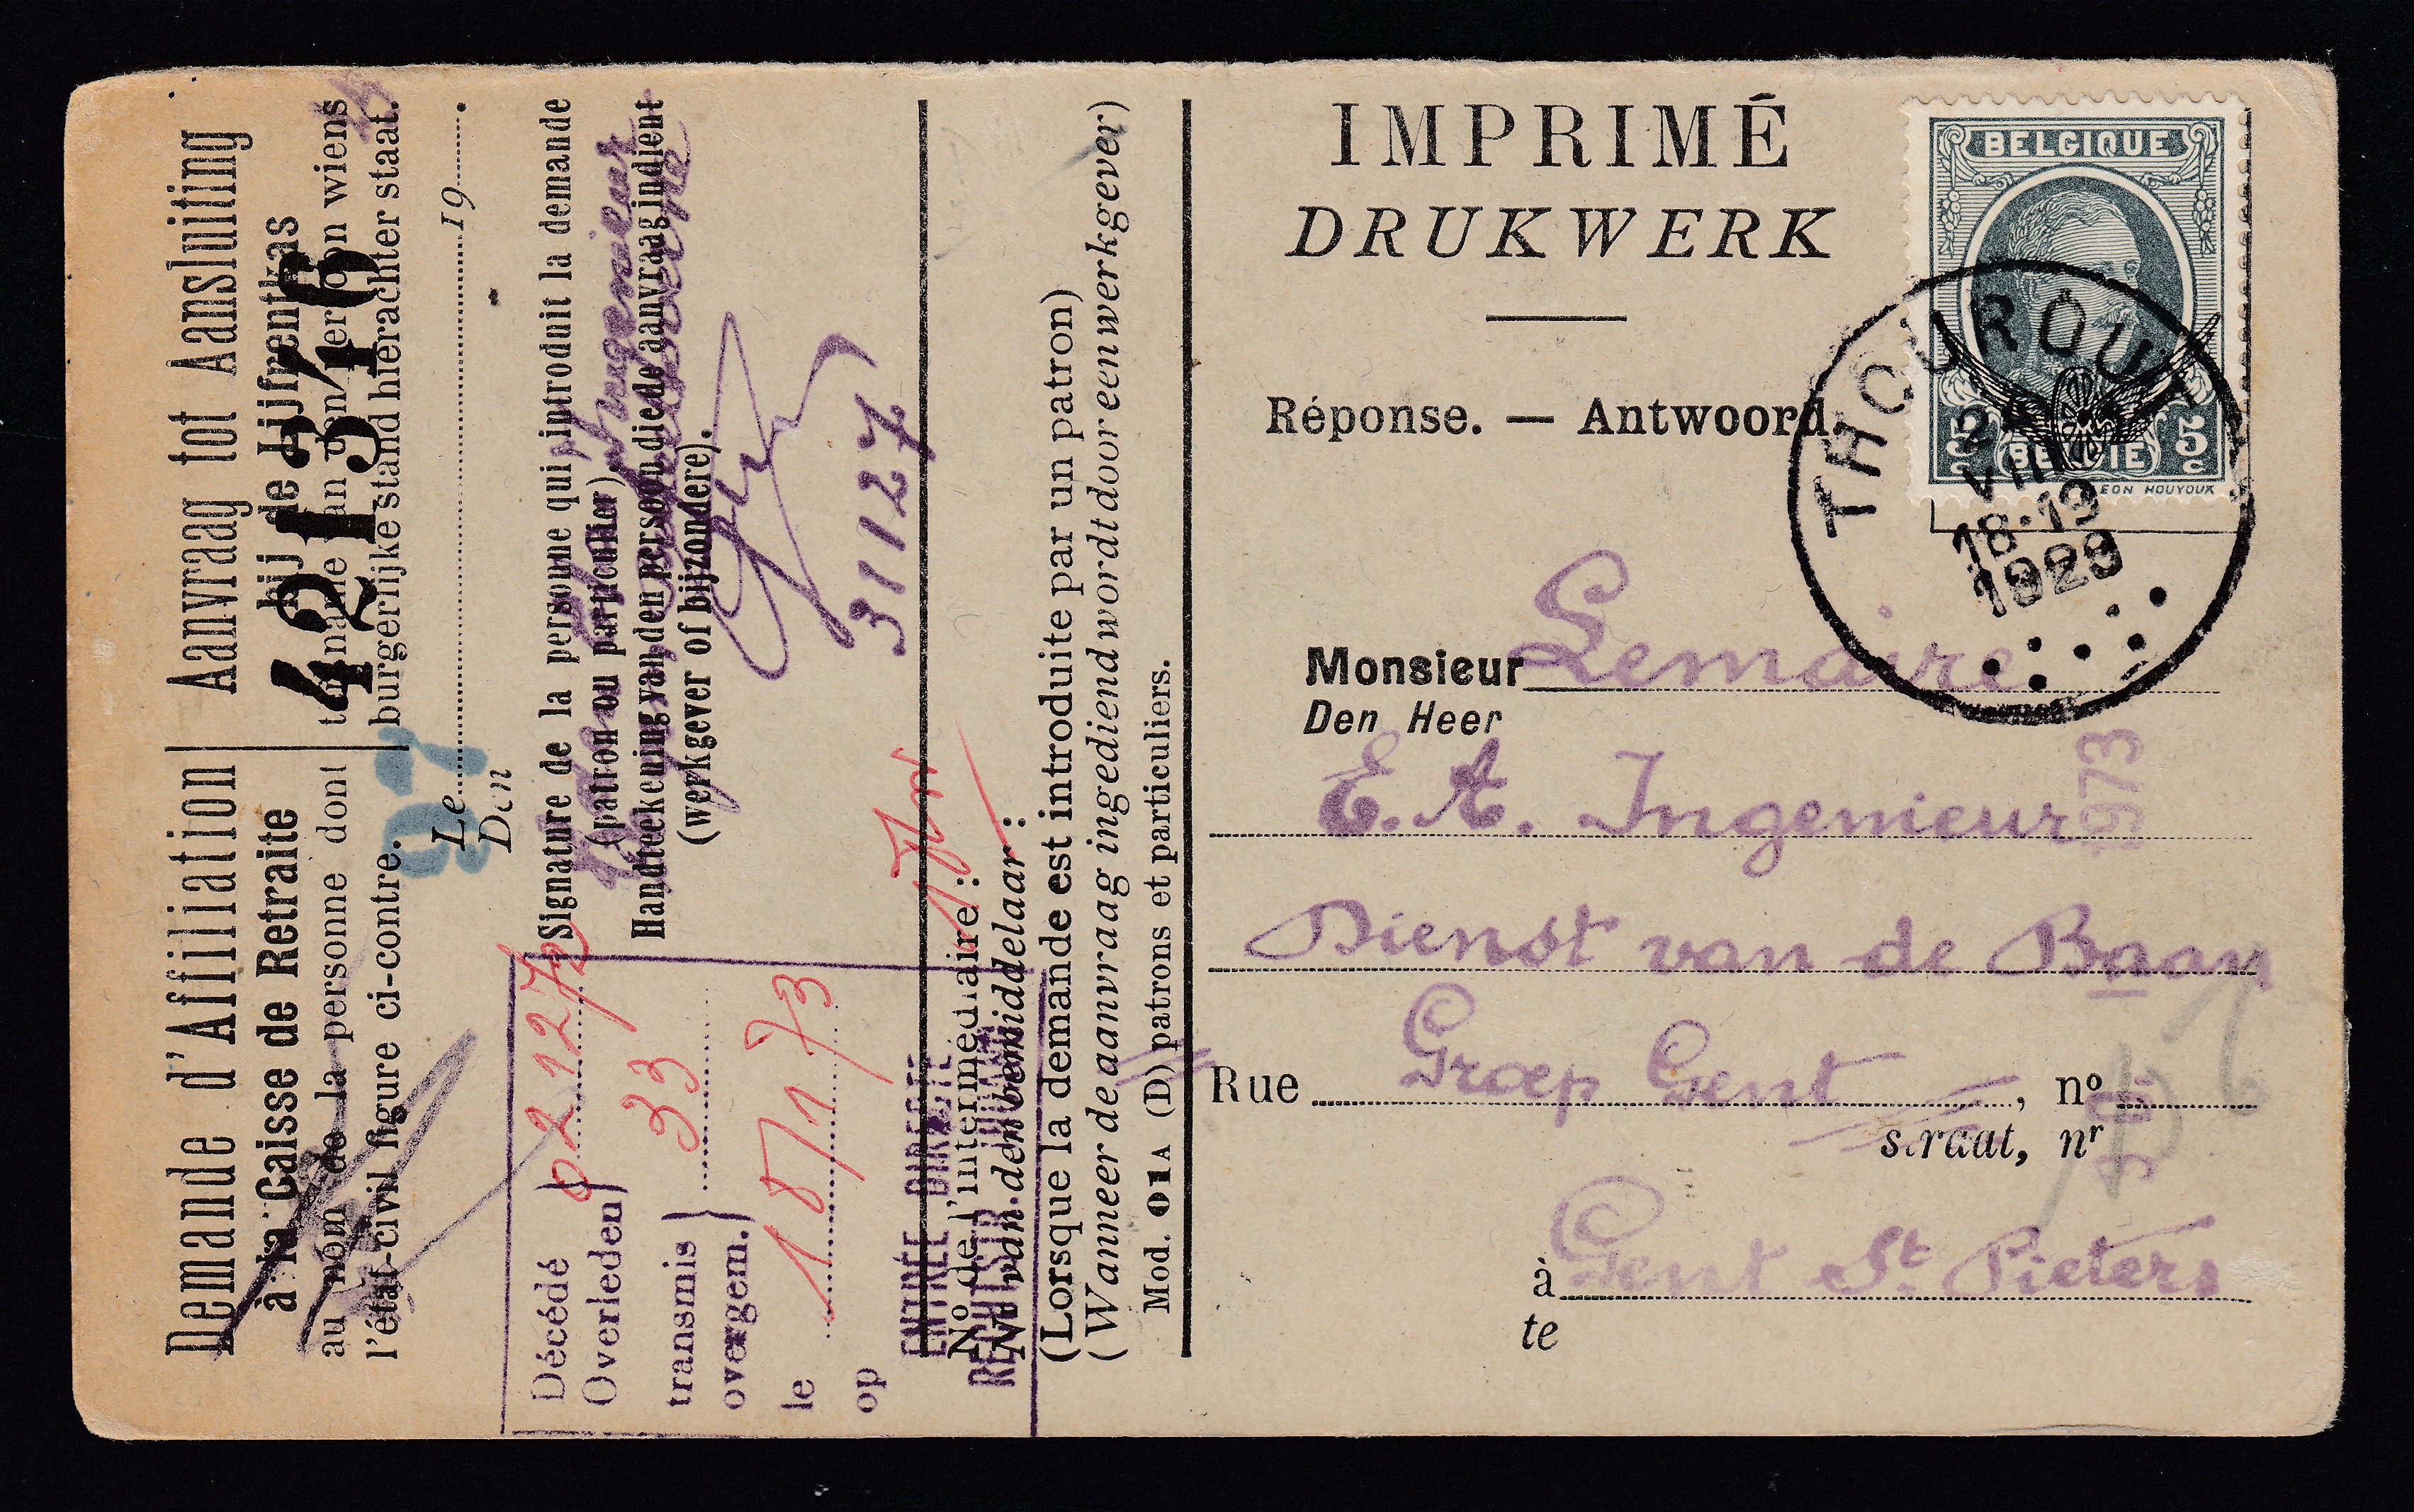 IMPRIMÉ
DRUKWERK
Réponse. — Antwoord.
BELGIQUE
5 c BELGIË 5 c
EON HOUYOUX
THOUROUT
VIII
18-19
1929
Monsieur Lemaire
Den Heer
E. A. Ingenieur
Dienst van de Baan
Rue Groep Gent, nº
straat, nr
à Gent St. Pieters
te
973
Demande d'Affiliation | Aanvraag tot Aansluiting
à la Caisse de Retraite | bij de Lijfrentkas
au nom de la personne dont | te name van den persoon wiens
l'état-civil figure ci-contre. | burgerlijke stand hierachter staat.
421546
97
Le 19 .
Den
Signature de la persone qui introduit la demande
(patron ou particulier).
Handteekening van den persoon die de aanvraag indient
(werkgever of bijzondere).
Ingenieur
31127
Décédé
Overleden
transmis 33
overgem.
le 18/1/73
op
ENTRÉE DIRECTE
Nº de l'intermédiaire :
Nr van den bemiddelaar :
(Lorsque la demande est introduite par un patron)
(Wanneer de aanvraag ingediend wordt door een werkgever)
Mod. 01A (D) patrons et particuliers.